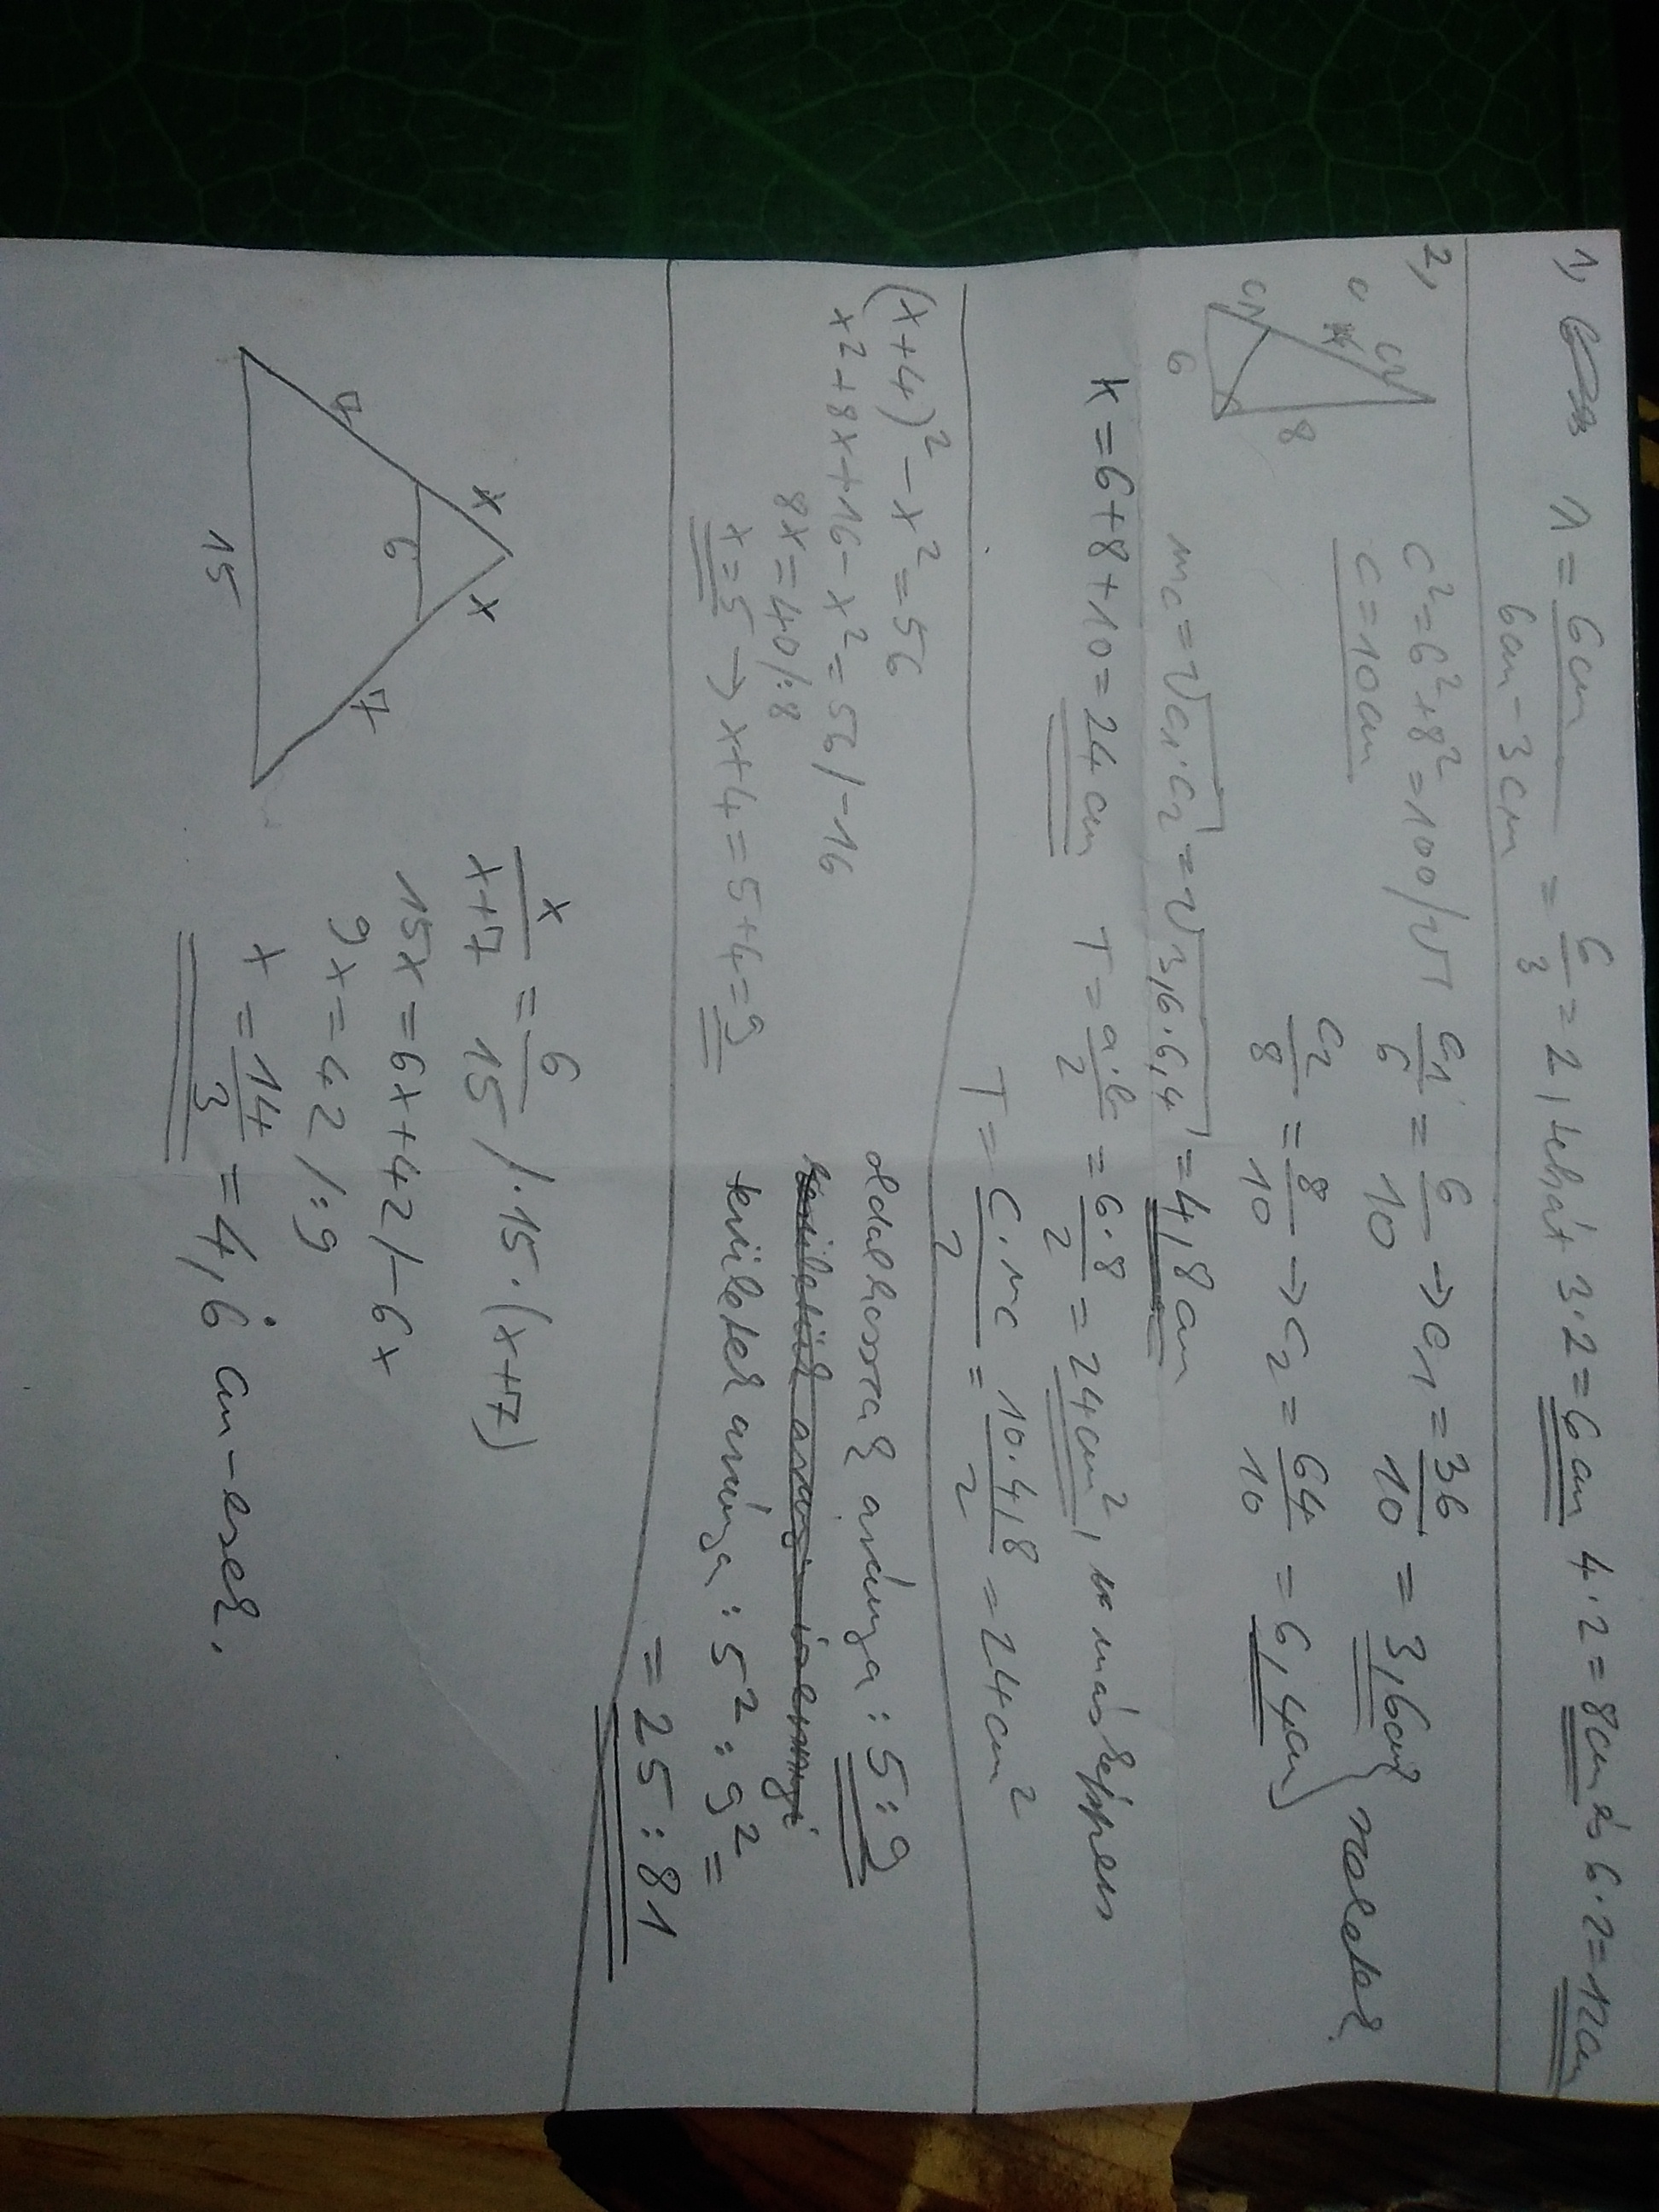 1, λ = 6cm / 6cm-3cm = 6/3 = 2, tehát 3·2=6cm 4·2=8cm és 6·2=12cm
2,
c c1 c2 6 8
c²=6²+8²=100/√
c=10cm
c1/6 = 6/10 → c1 = 36/10 = 3,6cm
c2/8 = 8/10 → c2 = 64/10 = 6,4cm } szeletek
mc = √c1·c2 = √3,6·6,4 = 4,8cm
K=6+8+10=24cm T=a·b/2 = 6·8/2 = 24cm², v. másképpen
T = c·mc/2 = 10·4,8/2 = 24cm²
(x+4)²-x²=56
x2+8x+16-x²=56/-16
8x=40/:8
x=5 → x+4=5+4=9
oldalhosszak aránya: 5:9
területek aránya: 5²:9²=
=25:81
x x
7 6 7
15
x/x+7 = 6/15 /·15·(x+7)
15x=6x+42/-6x
9x=42/:9
x=14/3=4,6̇ cm-esek.